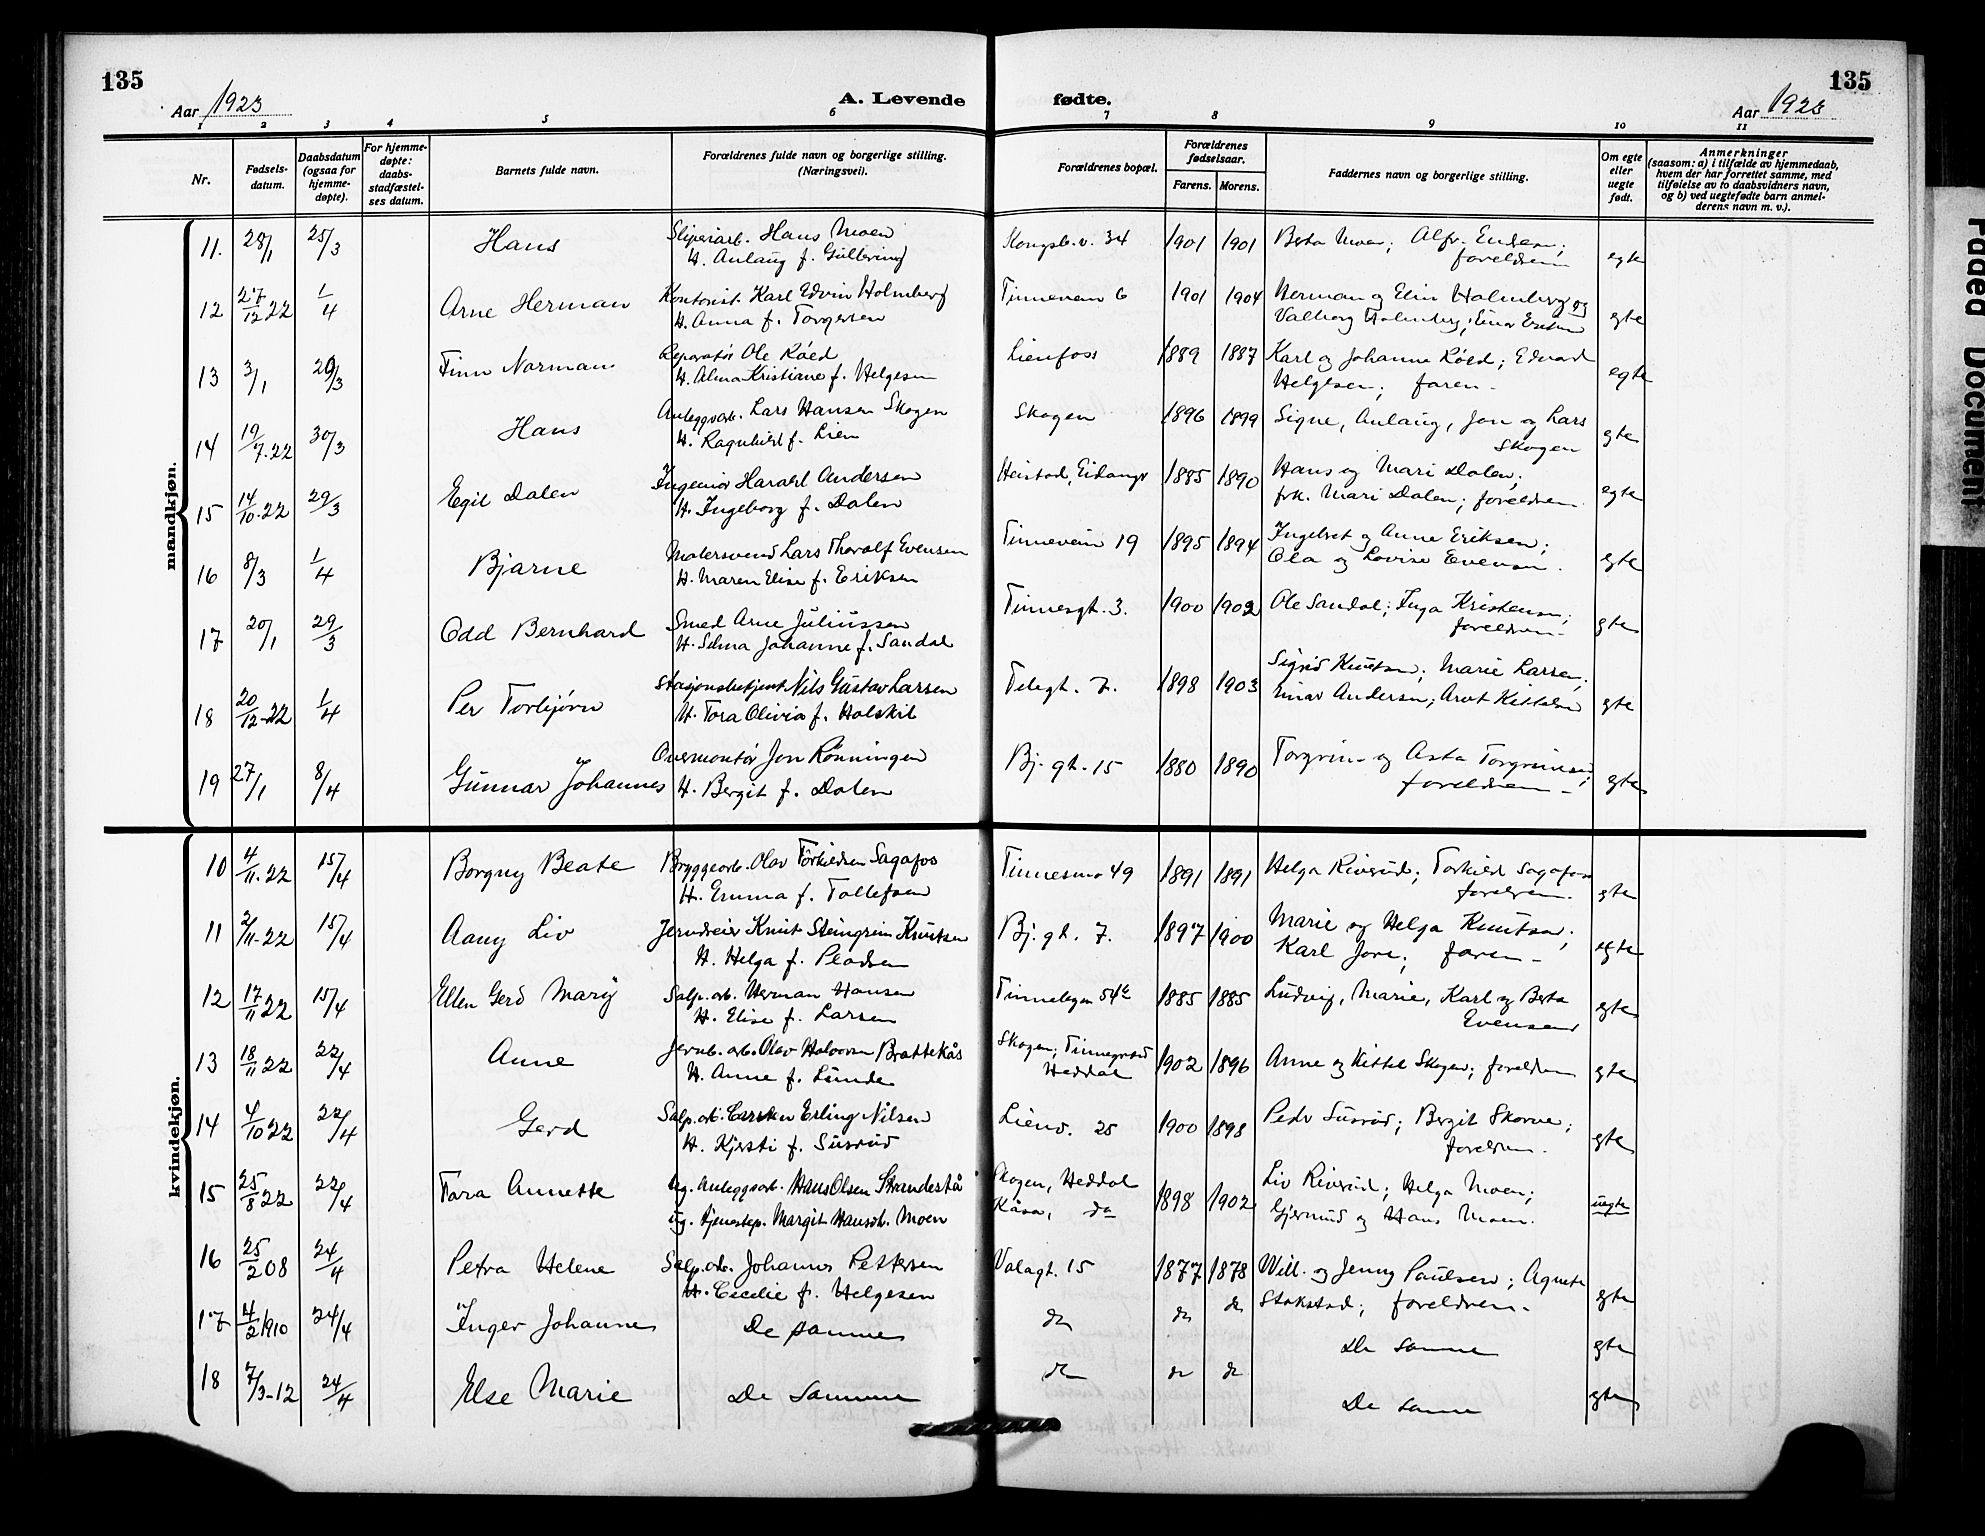 135
Aar 1923
A. Levende fødte.
135
Aar 1923
1 2 3 4 5 6 7 8 9 10 11
Nr.
Fødsels-
datum.
Daabsdatum
(ogsaa for
hjemme-
døpte).
For hjemme-
døpte:
daabs-
stadfæstel-
ses datum.
Barnets fulde navn.
Forældrenes fulde navn og borgerlige stilling.
(Næringsvei).
Forældrenes bopæl.
Forældrenes
fødselsaar.
Farens. Morens.
Faddernes navn og borgerlige stilling.
Om egte
eller
uegte
født.
Anmerkninger
(saasom: a) i tilfælde av hjemmedaab,
hvem der har forrettet samme, med
tilføielse av to daabsvidners navn,
og b) ved uegtefødte barn anmel-
derens navn m. v.).
mandkjøn.
11. 28/1 25/3 Hans Sliperiarb. Hans Moen Kongsb.v. 34 1901 1901 Berta Moen; Alfr. Endresen;
H. Aulaug f. Gullering foreldrene egte
12 27/12 22 1/4 Arne Herman Kontorist. Karl Edvin Holmberg Tinnevein 6 1901 1904 Herman og Elin Holmberg og
H. Anna f. Torgersen Valborg Holmberg; Einar egte
13 3/1 29/3 Finn Norman Reparatør Ole Röed Lienfoss 1889 1887 Karl og Johanne Röed; Edvard
H. Alma Kristiane f. Helgesen Helgesen; faren - egte
14 19/7.22 30/3 Hans Anleggsarb. Lars Hansen Skogen Skogen 1896 1899 Signe, Aulaug, Jon og Lars
H. Ragnhild f. Lien Skogen egte
15 14/10.22 29/3 Egil Dalen Ingeniør Harald Andersen Heistad, Eidanger 1885 1890 Hans og Mari Dalen;
H. Ingeborg f. Dalen frk. Mari Dalen; foreldrene. egte
16 8/3 1/4 Bjarne Malersvend Lars Thoralf Evensen Tinnevein 19 1895 1894 Ingebret og Anne Eriksen;
H. Maren Elise f. Eriksen Ola og Lovise Evensen. egte
17 20/1 29/3 Odd Bernhard Smed Arne Juliussen Tinnesgt. 3. 1900 1902 Ole Sandal; Inga Kristensen;
H. Selma Johanne f. Sandal foreldrene- egte
18 20/12-22 1/4 Per Torbjörn Stasjonsbetjent Nils Gustav Larsen Telegt. 7. 1898 1903 Sigrid Knutsen; Marie Larsen;
H. Tora Olivia f. Holskil Einar Andersen; Arvt Kittelsen egte
19 27/1 8/4 Gunnar Johannes Overmontör Jon Rönningen Bj. gt. 15 1880 1890 Torgrim og Asta Torgrimsen;
H. Bergit f. Dalen foreldrene - egte
kvindekjøn.
10 4/11.22 15/4 Borgny Beate Bryggearb. Olav Torkildsen Sagafos Tinnesmo 49 1891 1891 Helga Riverud; Torkild Sagafos
H. Emma f. Tollefsen foreldrene. egte
11 2/11-22 15/4 Aany Liv Jerndreier Knut Steingrim Knutsen Bj. gt. 7. 1897 1900 Marie og Helga Knutsen;
H. Helga f. Pladsen Karl Jore; faren - egte
12 17/11 22 15/4 Ellen Gerd Mary Salp. arb. Herman Hansen Tinnebyen 54 1885 1885 Ludvig, Marie, Karl og Berta
H. Elise f. Larsen Evensen egte
13 18/11 22 22/4 Anne Jernb. arb. Olav Halvorsen Brattekås Skogen; Tinnegrend 1902 1896 Anne og Kittel Skogen; foreldrene
H. Anne f. Lunde Heddal egte
14 4/10 22 22/4 Gerd Salp. arb. Carsten Erling Nilsen Lienv. 25 1900 1898 Peder Susrud; Bergit Skorve;
H. Kjersti f. Susrud foreldrene. egte
15 25/8 22 22/4 Tora Annette Ug. Anleggsarb. Hans Olsen Strandestå Skogen, Heddal 1898 1902 Liv Riverud; Helga Moen;
Ug. tjenestep. Margit Hansdt. Moen Kåsa, do Gjermud og Hans Moen. uegte
16 25/2 08 24/4 Petra Helene Salp. arb. Johannes Pettersen Valagt. 15 1877 1878 Will. og Jenny Paulsen; Agnete
H. Cecilie f. Helgesen Stokstad; foreldrene. egte
17 4/2 1910 24/4 Inger Johanne De samme do do do De samme egte
18 7/3-12 24/4 Else Marie De samme do do do De samme egte